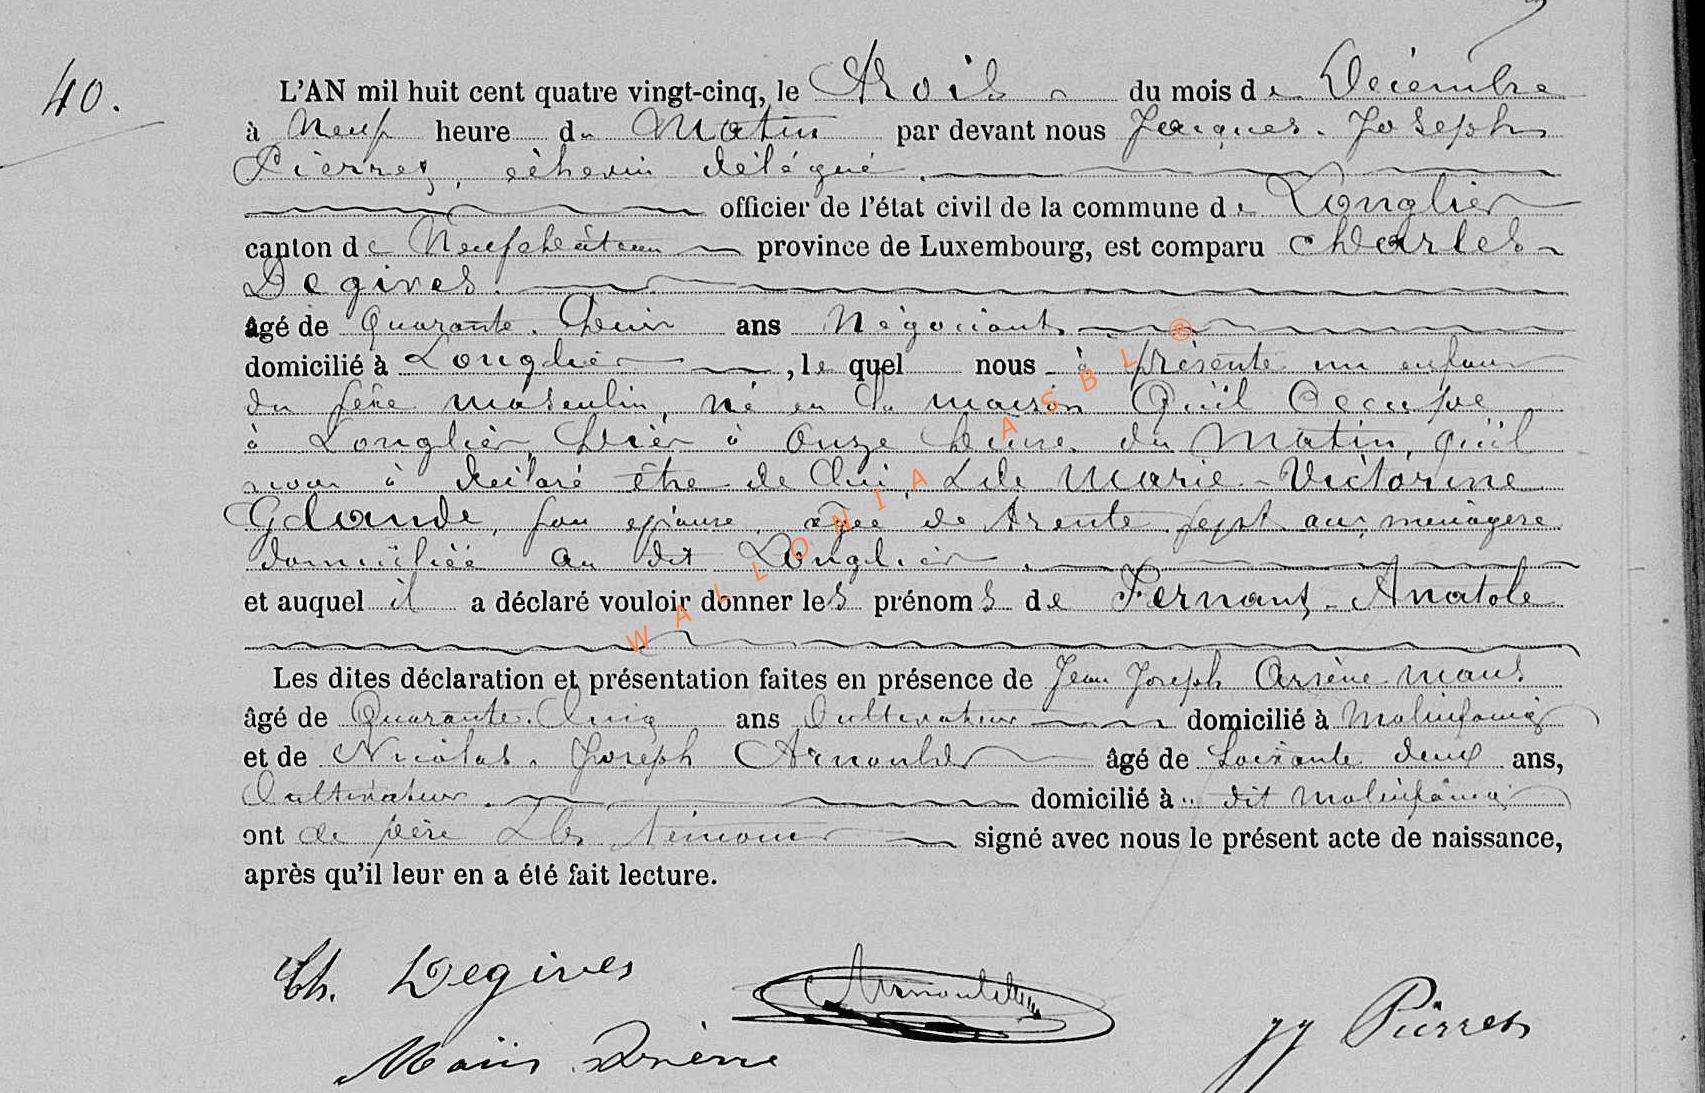 40.
L'AN mil huit cent quatre vingt-cinq, le Trois du mois de Décembre
à Neuf heure du Matin par devant nous Jacques. Joseph
Pierret, échevin délégué.
officier de l'état civil de la commune de Longlier
canton de Neufchâteau province de Luxembourg, est comparu Charles
Degives.
âgé de Quarante. ans Négociant
domicilié à Longlier, le quel nous à présenté un enfant
du sexe masculin, né en la maison Qu'il Occupe
à Longlier, hier à Onze heure du Matin, qu'il
nous à déclaré être de lui & de Marie-Victorine
Glaude, son épouse, agée de trente sept ans, menagère
domiciliée au dit Longlier.
et auquel il a déclaré vouloir donner les prénoms de Fernant-Anatole
Les dites déclaration et présentation faites en présence de Jean Joseph Arsène maus
âgé de Quarante. Cinq ans Cultivateur domicilié à Molinfaing
et de Nicolas. Joseph Arnould âgé de Soixante deux ans,
Cultivateur. domicilié à dit Molinfaing
ont le père & les témoins signé avec nous le présent acte de naissance,
après qu'il leur en a été fait lecture.
Ch. Degives
Arnould
JJ Pierret
WALLONIA ASBL ®